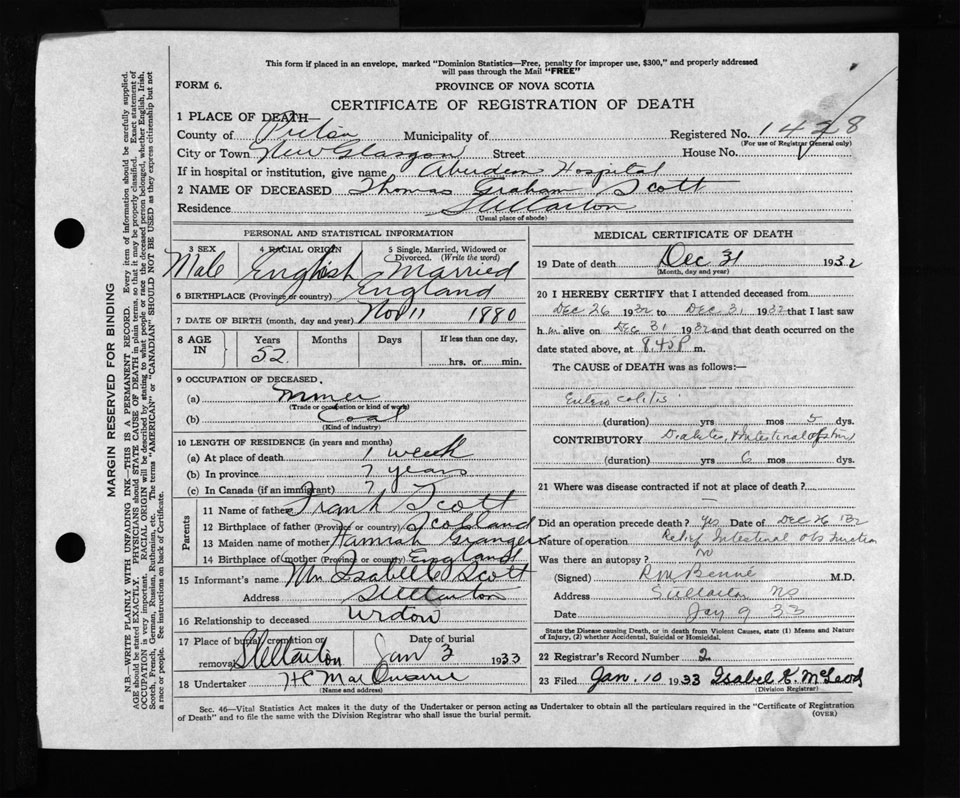 This form if placed in an envelope, marked "Dominion Statistics—Free, penalty for improper use, $300," and properly addressed
will pass through the Mail "FREE"
FORM 6.
PROVINCE OF NOVA SCOTIA
CERTIFICATE OF REGISTRATION OF DEATH
1 PLACE OF DEATH—
County of Pictou Municipality of Registered No. 1428
(For use of Registrar General only)
City or Town New Glasgow Street House No.
If in hospital or institution, give name Aberdeen Hospital
2 NAME OF DECEASED Thomas Graham Scott
Residence Stellarton
(Usual place of abode)
PERSONAL AND STATISTICAL INFORMATION
3 SEX 4 RACIAL ORIGIN 5 Single, Married, Widowed or Divorced. (Write the word)
Male English Married
6 BIRTHPLACE (Province or country) England
7 DATE OF BIRTH (month, day and year) Nov 11 1880
8 AGE IN Years Months Days If less than one day,
52 hrs. or min.
9 OCCUPATION OF DECEASED,
(a) Miner
(Trade or occupation or kind of work)
(b) Coal
(Kind of industry)
10 LENGTH OF RESIDENCE (in years and months)
(a) At place of death 1 week
(b) In province 7 years
(c) In Canada (if an immigrant) 7
Parents
11 Name of father Frank Scott
12 Birthplace of father (Province or country) Scotland
13 Maiden name of mother Hannah Granger
14 Birthplace of mother (Province or country) England
15 Informant's name Mrs Isabell Scott
Address Stellarton
16 Relationship to deceased widow
17 Place of burial, cremation or removal Stellarton Date of burial Jan 3 1933
18 Undertaker H C
(Name and address)
MEDICAL CERTIFICATE OF DEATH
19 Date of death Dec 31 1932
(Month, day and year)
20 I HEREBY CERTIFY that I attended deceased from
Dec 26 1932 to Dec 31 1932 that I last saw
h im alive on Dec 31 1932 and that death occurred on
date stated above, at 8.45 P m.
The CAUSE of DEATH was as follows:
Entero colitis
(duration) yrs mos 5 dys.
CONTRIBUTORY Diabetes, Intestinal
(duration) yrs 6 mos dys.
21 Where was disease contracted if not at place of death?
Did an operation precede death? Yes Date of Dec 26 '32
Nature of operation Relief Intestinal obstruction
Was there an autopsy? No
(Signed) M.D.
Address Stellarton NS
Date Jany 9 33
State the Disease causing Death, or in death from Violent Causes, state (1) Means and Nature
of Injury, (2) whether Accidental, Suicidal or Homicidal.
22 Registrar's Record Number 2
23 Filed Jan. 10 1933 Isabel K. McLeod
(Division Registrar)
Sec. 46—Vital Statistics Act makes it the duty of the Undertaker or person acting as Undertaker to obtain all the particulars required in the "Certificate of Registration
of Death" and to file the same with the Division Registrar who shall issue the burial permit.
(OVER)
MARGIN RESERVED FOR BINDING
N.B.—WRITE PLAINLY WITH UNFADING INK—THIS IS A PERMANENT RECORD. Every item of information should be carefully supplied.
AGE should be stated EXACTLY. PHYSICIANS should STATE CAUSE OF DEATH in plain terms, so that it may be properly classified. Exact statement of
OCCUPATION is very important. RACIAL ORIGIN will be described by stating to what people or race the deceased person belonged, whether English, Irish,
Scotch, French, German, Russian, Ruthenian, etc. The terms "AMERICAN" or "CANADIAN" SHOULD NOT BE USED as they express citizenship but not
a race or people. See instructions on back of Certificate.